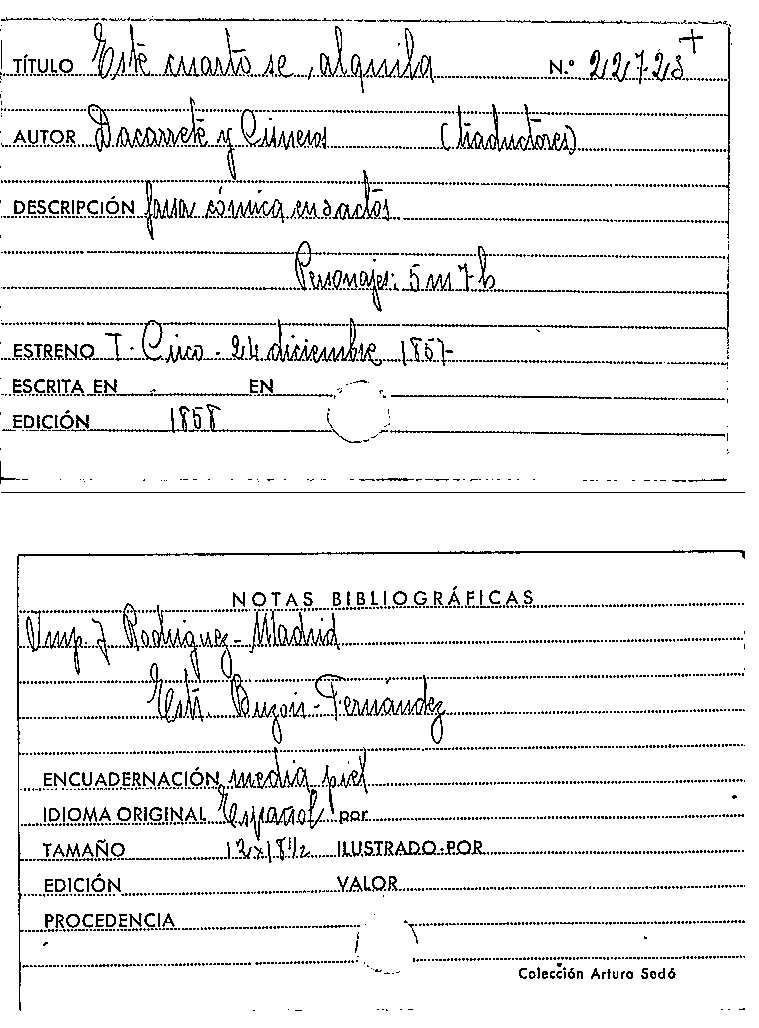 TÍTULO Este cuarto se alquila N.º 22728 +
AUTOR Dacarrete y Cisneros (traductores)
DESCRIPCIÓN farsa cómica en 3 actos
Personajes: 5 m 7 h
ESTRENO T. Circo - 24 diciembre 1857
ESCRITA EN EN
EDICIÓN 1858
NOTAS BIBLIOGRÁFICAS
Imp. J Rodriguez - Madrid
Estr. - Fernández
ENCUADERNACIÓN media piel
IDIOMA ORIGINAL Español por
TAMAÑO 12x18½ ILUSTRADO POR
EDICIÓN VALOR
PROCEDENCIA
Colección Arturo Sedó